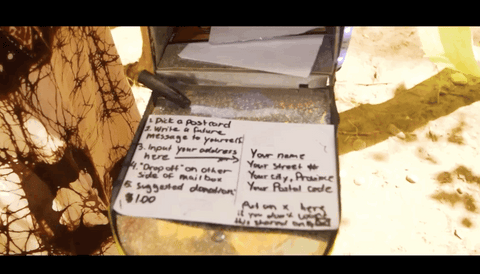 1. Pick a Postcard
2. Write a future
message to yourself
3. Input your address
here
4. "Drop off" on other
side of mailbox
5. Suggested donation
$1.00
Your name
Your street #
Your city, Province
Your Postal Code
Put an x here
if you don't want
this shared on